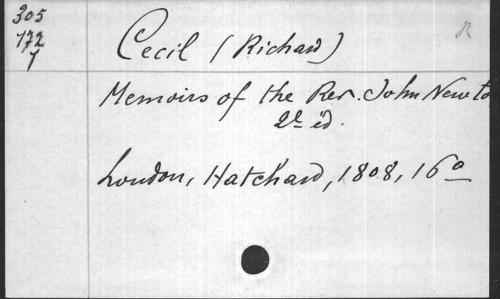 305
172
7
Cecil (Richard)
R
Memoirs of the Rev. John Newto
2e éd.
London, Hatchard, 1808, 16o